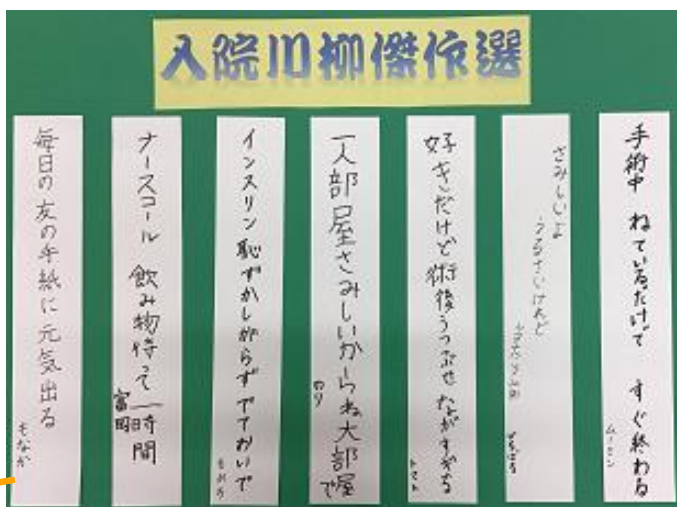 入院川柳傑作選
手術中 ねているだけで すぐ終わる
ムーミン
さみしいよ
うるさいけれど
好きだけど術後うつぶせ ながすぎる
トマト
一人部屋さみしいからね大部屋で
のり
インスリン恥ずかしがらず でておいで
ナースコール 飲み物待って一時間
富岡
毎日の友の手紙に元気出る
もなか